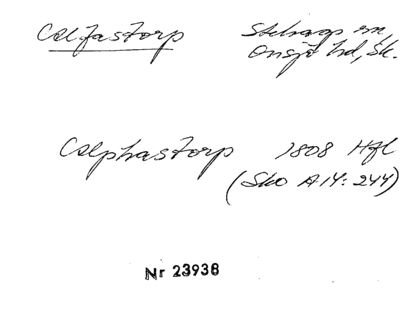 Calfastorp Stehags sn,
Onsjö hd, Sk.
Calphastorp 1808 Hfl
(Sko A 14: 244)
Nr 23938